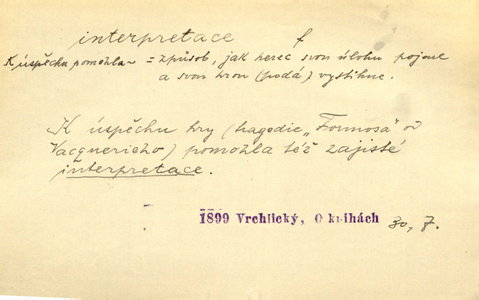 interpretace f
K úspěchu pomohla ~ = způsob, jak herec svou úlohu pojme
a svou hrou (podá) vystihne.
K úspěchu hry (tragedie „Formosa" od
Vacquericho) pomohla též zajisté
interpretace.
1899 Vrchlický, O knihách 30, 7.